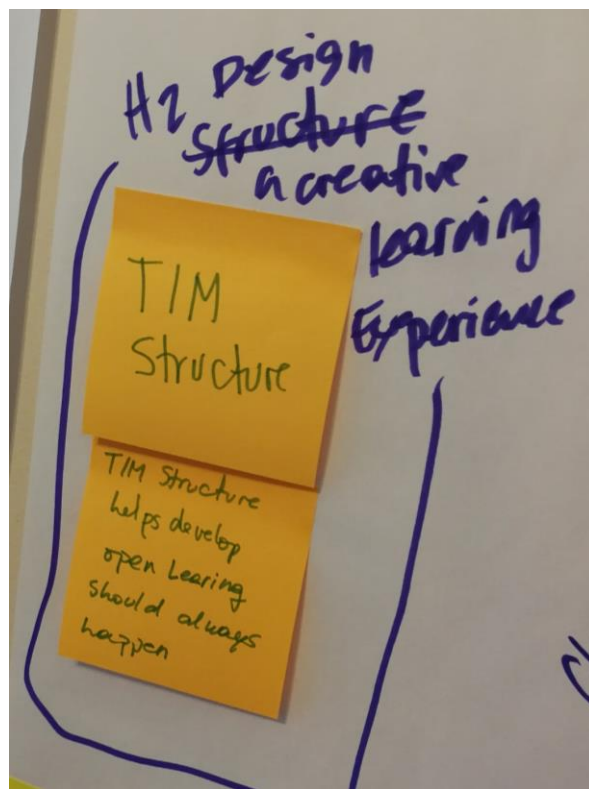 H2 Design
Structure
a creative
learning
Experience
TIM
Structure
TIM Structure
helps develop
open Learing
should always
happen